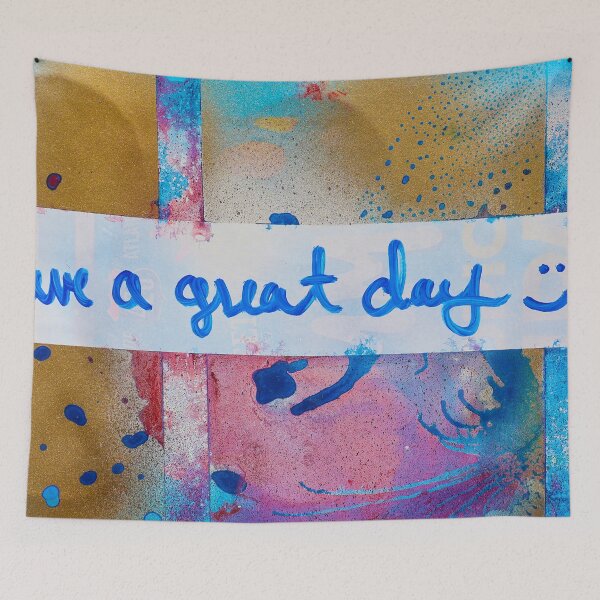 ave a great day :)